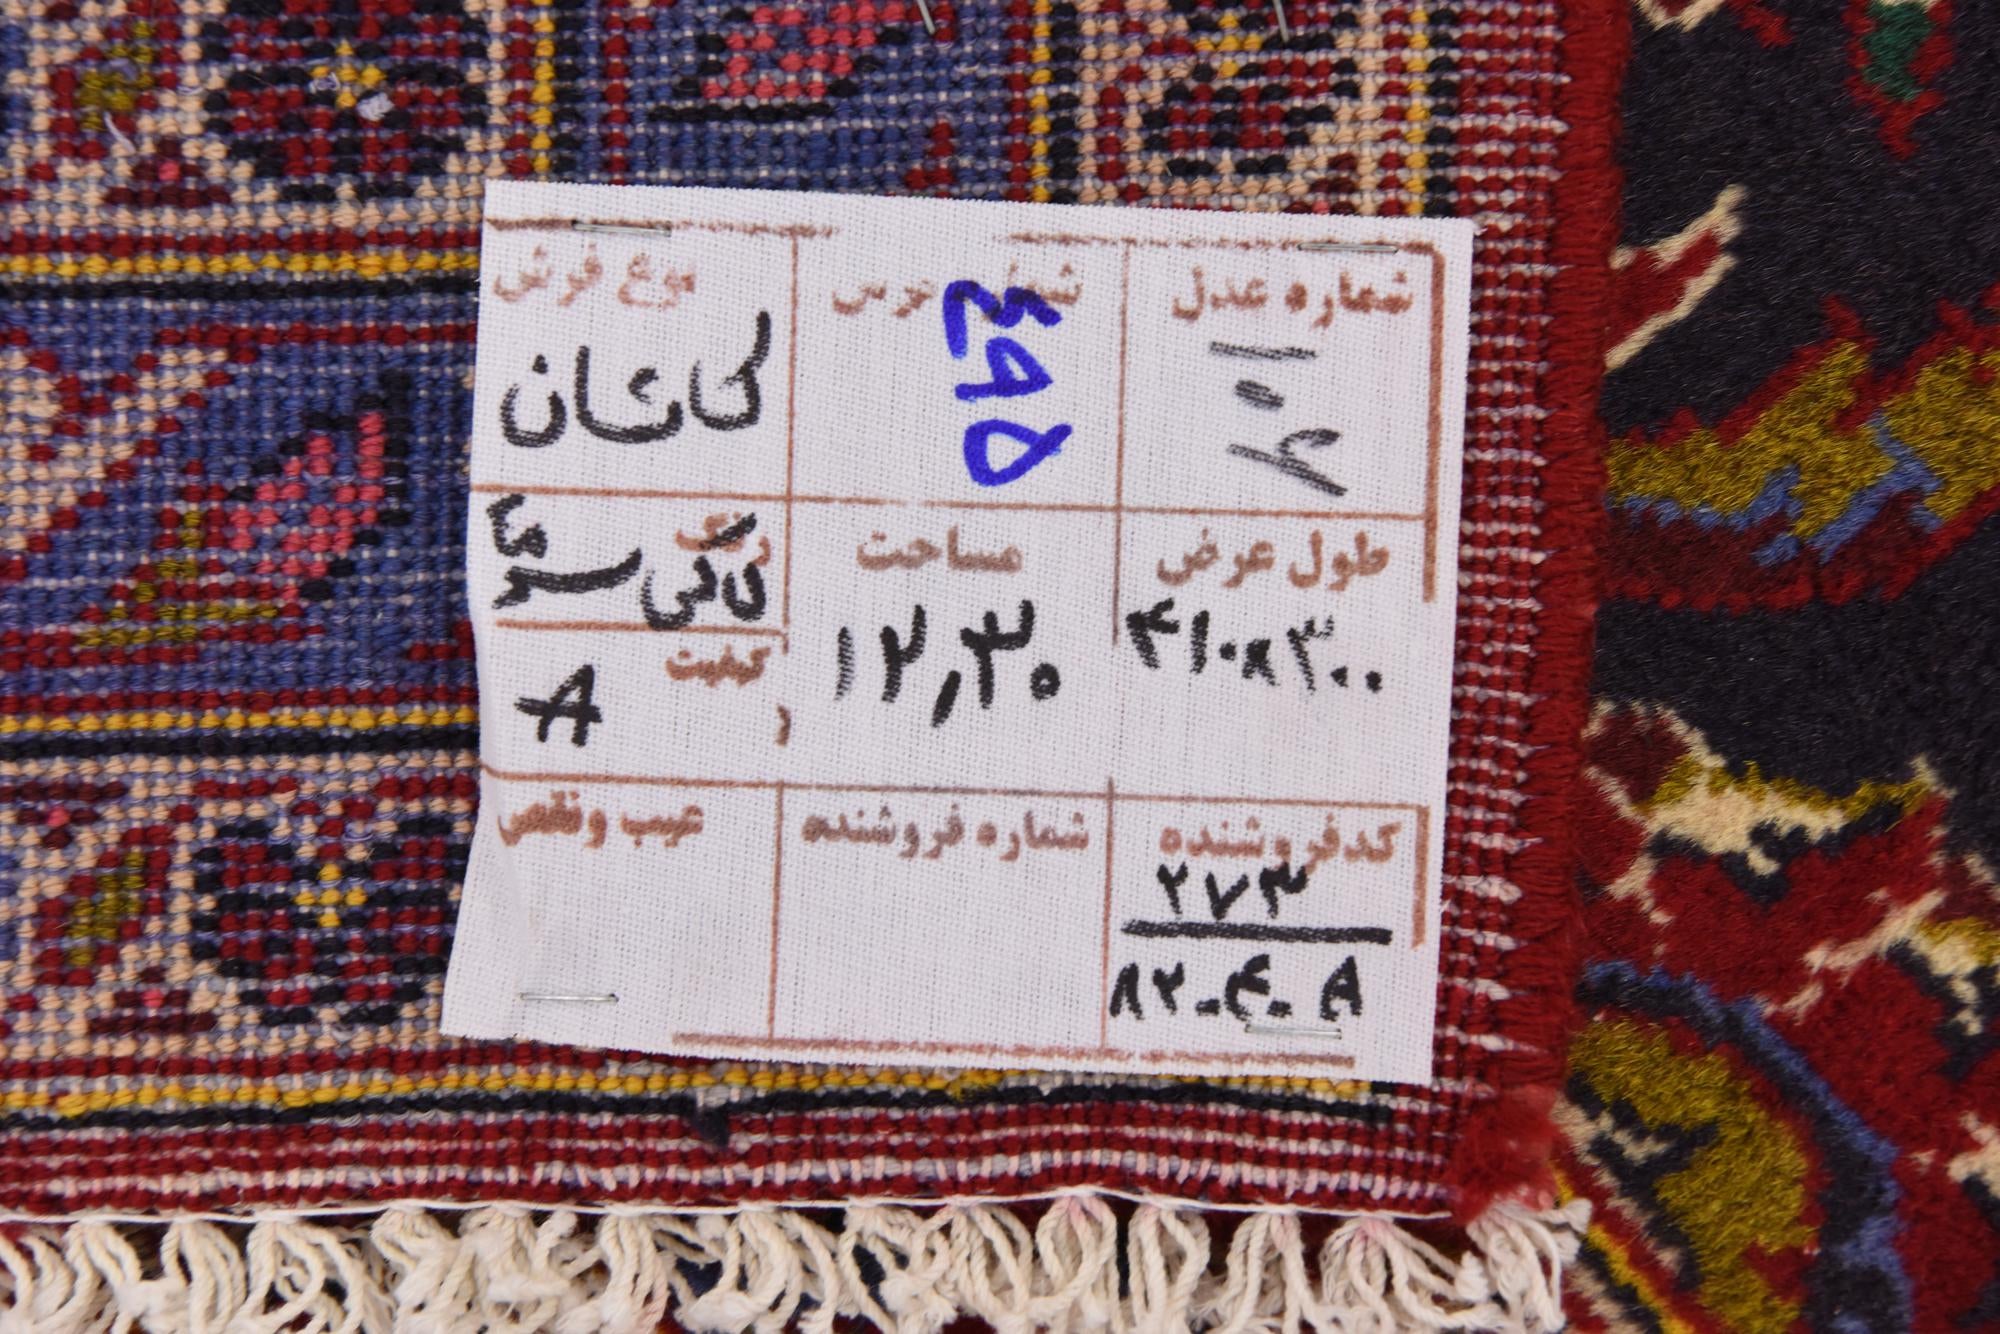 شماره عدل
۱۰۷
شماره فرش
۴۹۵
نوع فرش
کاشان
طول عرض
۴۱۰×۳۰۰
مساحت
۱۲,۳۰
رنگ
کیفیت
A
کدفروشنده
۲۷۳
۸۲-۴-A
شماره فروشنده
عیب ونقص